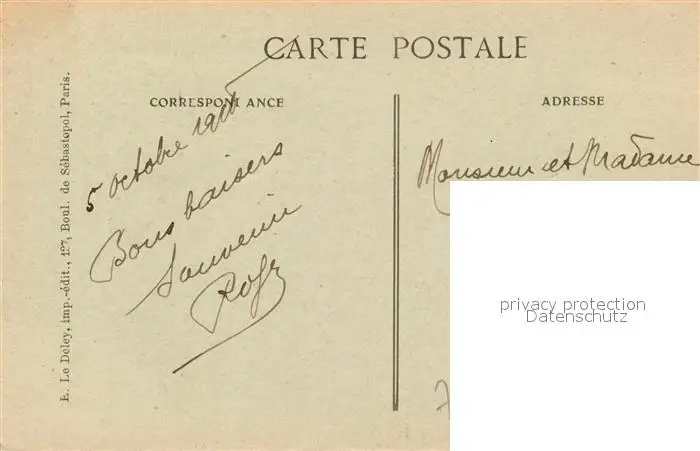 CARTE POSTALE
CORRESPONDANCE
ADRESSE
5 octobre
Bons baisers
Souvenir
Monsieur et Madame
E. Le Deley, imp.-édit., 127, Boul. de Sébastopol, Paris.
privacy protection
Datenschutz